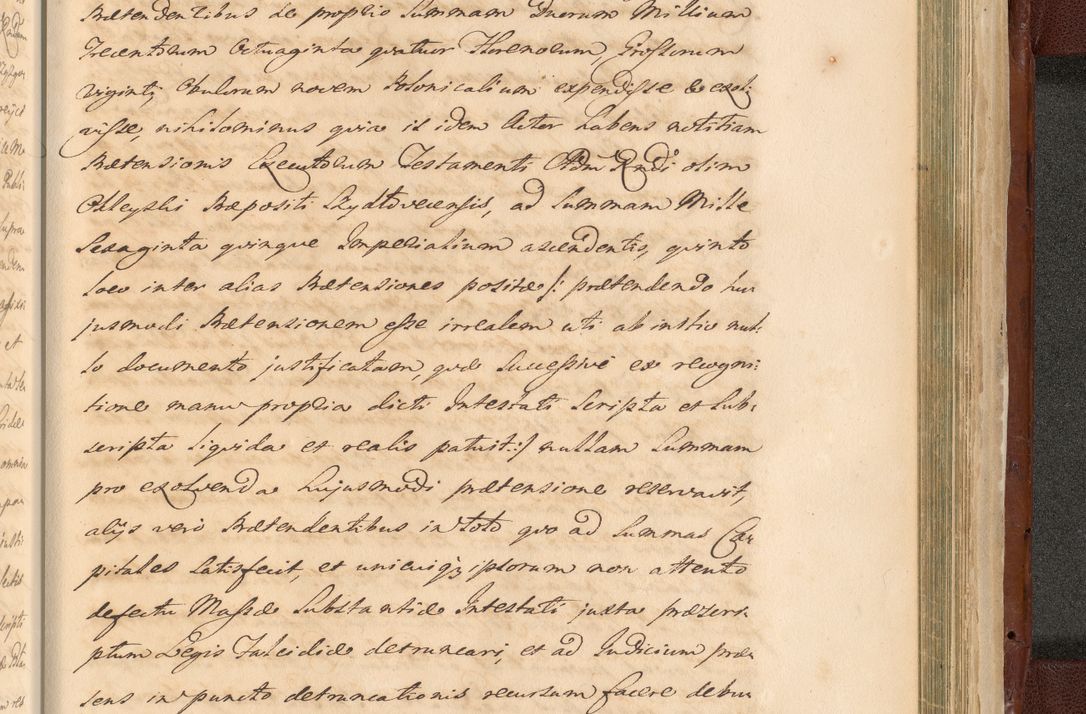 Prætendentibus de proprio Summam Duorum Millium
Trecentorum Octuaginta quatuor Florenorum, Grossorum
viginti, Obulorum novem Polonicalium expendisse & exol:
visse, nihilominus quia is idem Actor habens notitiam
Prætensionis Executorum Testamenti Adm Rndi olim
Præpositi Szydłoviecensis, ad Summam Mille
Sexaginta quinque Imperialium ascendentis, quinto
loco inter alias Prætensiones positæ /: prætendendo hu
jusmodi Prætensionem esse irrealem uti ab instio nul:
lo documento justificatam, quæ successivè ex recogni:
tione manu propria dicti Intestati Scripta et Sub:
scripta liquida et realis patuit :/ nullam Summam
pro exolvenda hujusmodi prætensione reservavit,
alijs verò Prætendentibus in toto quo ad Summas Ca
pitales satisfecit, et unicuiq; ipsorum non attento
defectu Massæ Substantiæ Intestati juxta præscri
ptum Legis Falcidiæ detruncari, et ad Judicium præ
sens in puncto detruncationis recursum facere debu